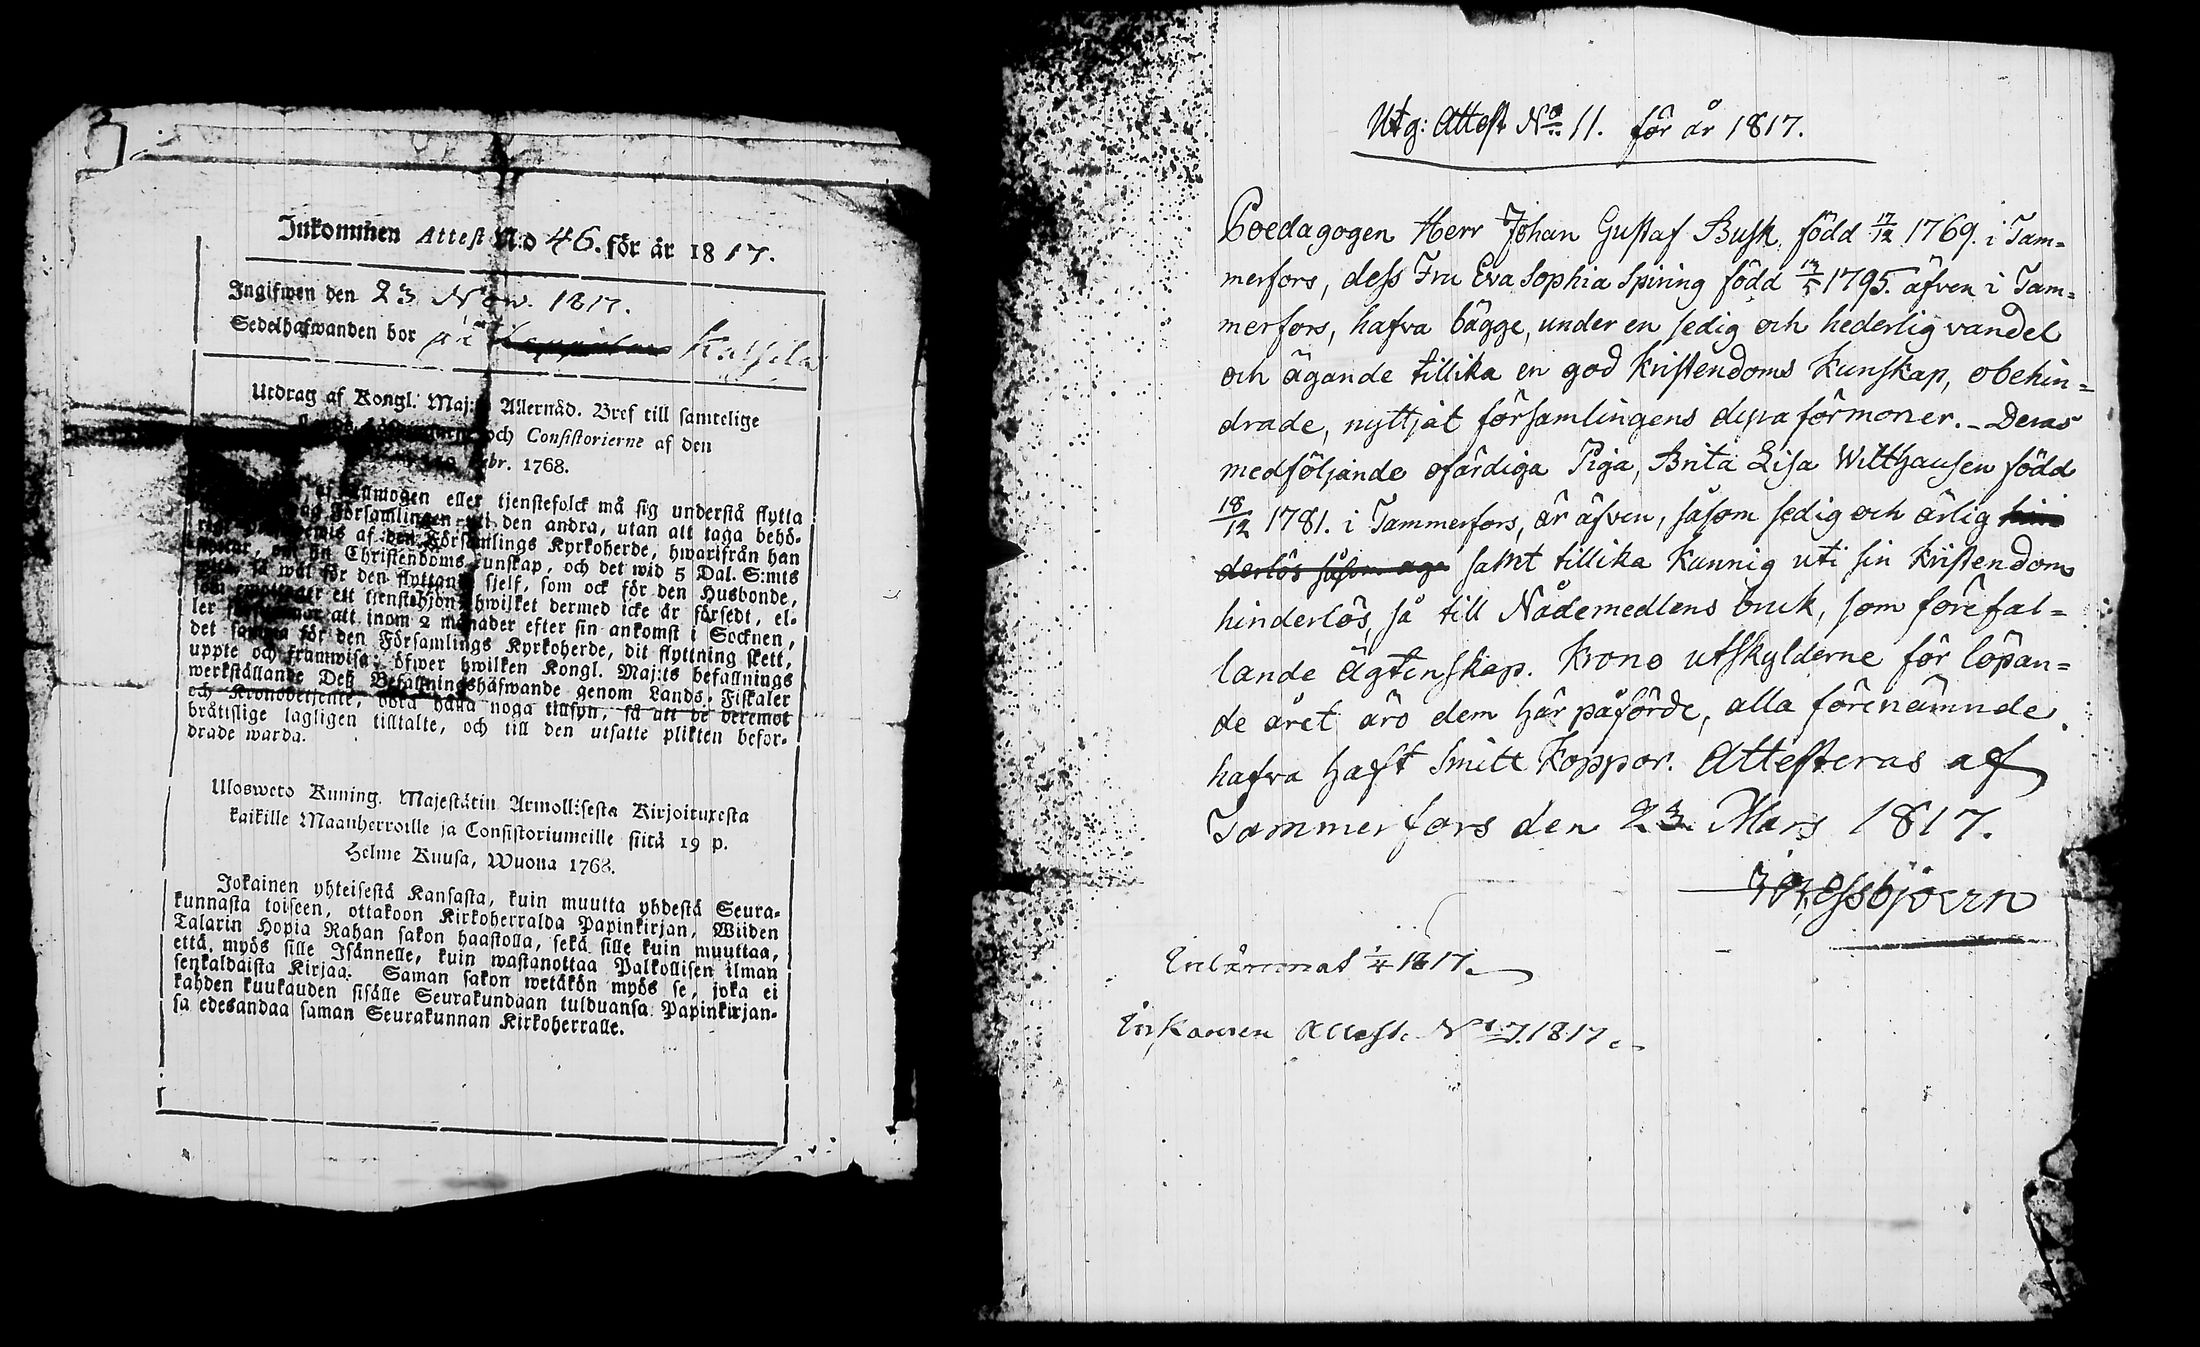 Inkommen Attest N:o 46. för år 1817.
Ingifwen den 23 Now. 1817.
Sedelhafwanden bor på Kassila
Utdrag af Kongl. Maj:ts Allernåd. Bref till samtelige
och Consistorierne af den
Febr. 1768.
af Allmogen eller tjenstefolck må sig understå flytta
Församlingen uti den andra, utan att taga behö-
af den Församlings Kyrkoherde, hwarifrån han
flyttar, om sin Christendoms kunskap, och det wid 5 Dal. S:mts
wite, så wäl för den flyttande sjelf, som ock för den Husbonde,
som emottager ett tjenstehjon, hwilket dermed icke är försedt, el-
ler försummar att inom 2 månader efter sin ankomst i Socknen,
det samma för den Församlings Kyrkoherde, dit flyttning skett,
uppte och framwisa; öfwer hwilken Kongl. Maj:ts befallnings
werkställande Deß Befallningshafwande genom Lands-Fiskaler
och Kronobetjente, böra hålla noga tillsyn, så att de deremot
bråttslige lagligen tilltalte, och till den utsatte plikten befor-
drade warda.
Ulosweto Kuning. Majestätin Armoll:sesta Kirjoituxesta
kaikille Maanherroille ja Consistoriumeille siitä 19 p.
Helme Kuusa, Wuona 1768.
Jokainen yhteisestä Kansasta, kuin muutta yhdestä Seura-
kunnasta toiseen, ottakoon Kirkoherralda Papinkirjan, Wiiden
Talarin Hopia Rahan sakon haastolla, sekä sille kuin muuttaa,
että myös sille Isännelle, kuin wastanottaa Palkollisen ilman
senkaldaista Kirjaa. Saman sakon wetäkön myös se, joka ei
kahden kuukauden sisälle Seurakundaan tulduansa Papinkirjan-
sa edesandaa saman Seurakunnan Kirkoherralle.
Utg: Attest No 11. för år 1817.
Poedagogen Herr Johan Gustaf Busk född 17/12 1769. i Tam=
merfors, dess Fru Eva Sophia Spiring född 13/5 1795. äfven i Tam=
merfors, hafva bägge, under en sedig och hederlig vandel
och ägande tillika en god Kristendoms Kunskap, obehin=
drade, nyttjat församlingens dyra förmoner. - Deras
medföljande ofärdiga Piga, Brita Lisa Wilthausen född
18/12 1781. i Tammerfors, är äfven, såsom sedig och ärlig hin
derlös såsom samt tillika Kunnig uti sin Kristendom
hinderlös, så till Nådemedlens bruk, som förefal=
lande Ägtenskap. Krono utskylderne för löpan=
de året äro dem här påförde, alla förenämnde
hafva haft Smitt Koppor. Attesteras af
Tammerfors den 23. Mars 1817.
Essbjoern
Inlämnat 1/4 1817.
Inkommen Attest. No 7. 1817.